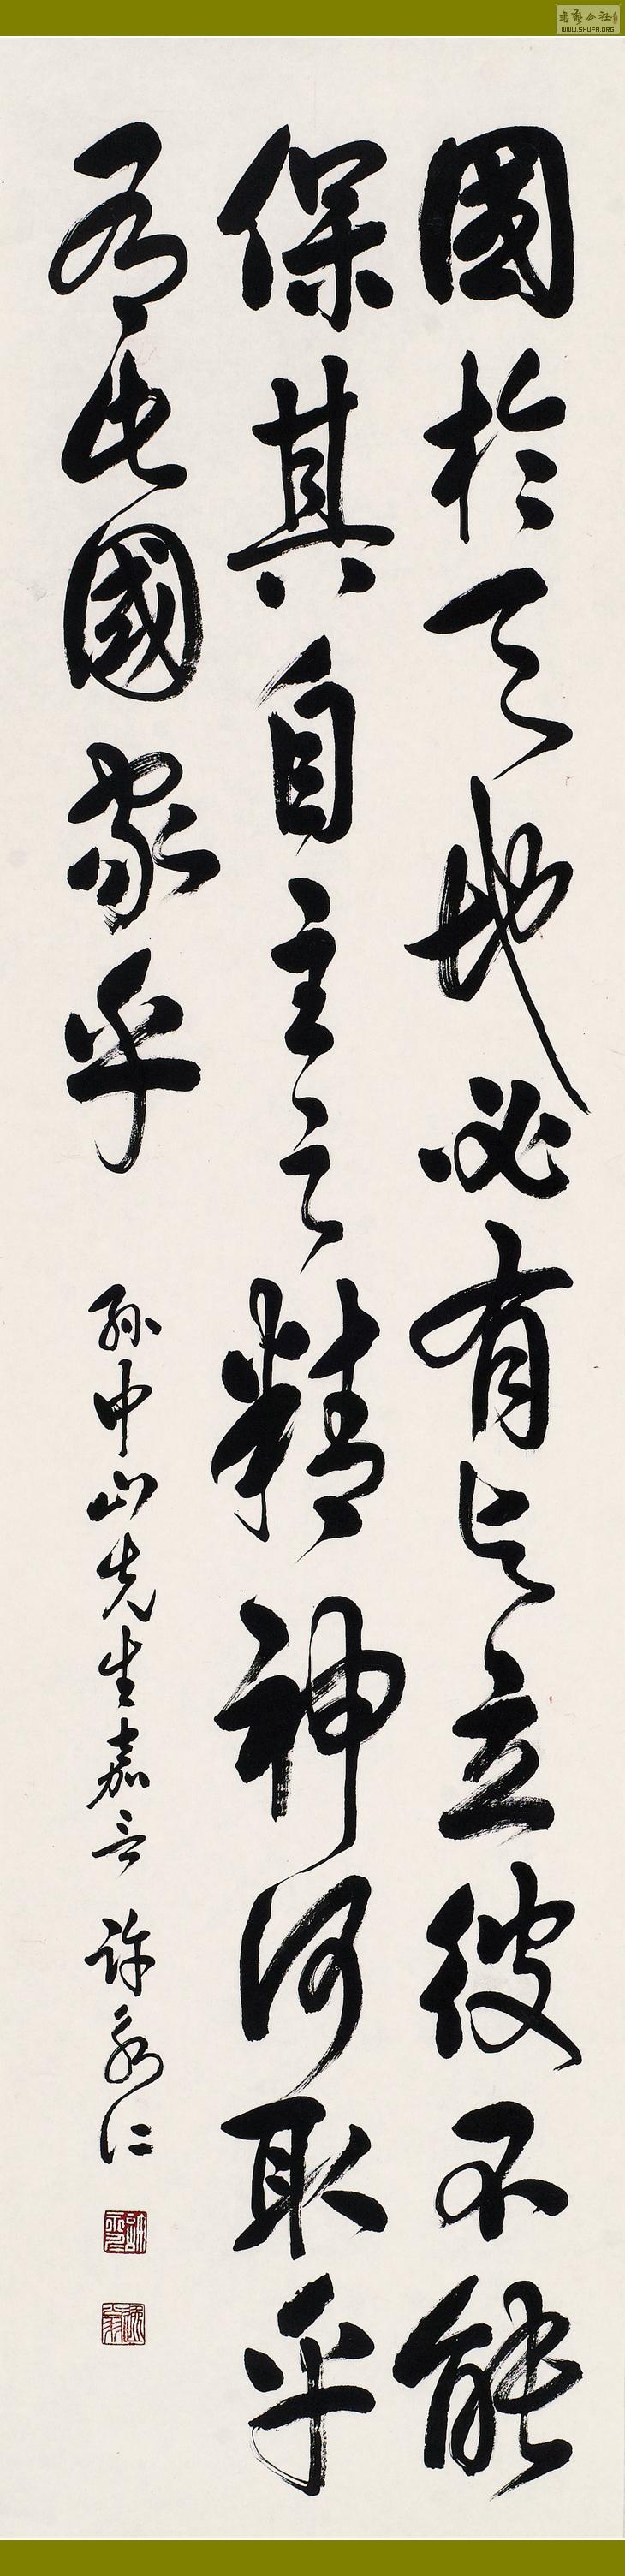 國於天地必有與立彼不能
保其自主之精神何取乎
有此國家乎
孫中山先生嘉言 許永仁
WWW.SHUFA.ORG